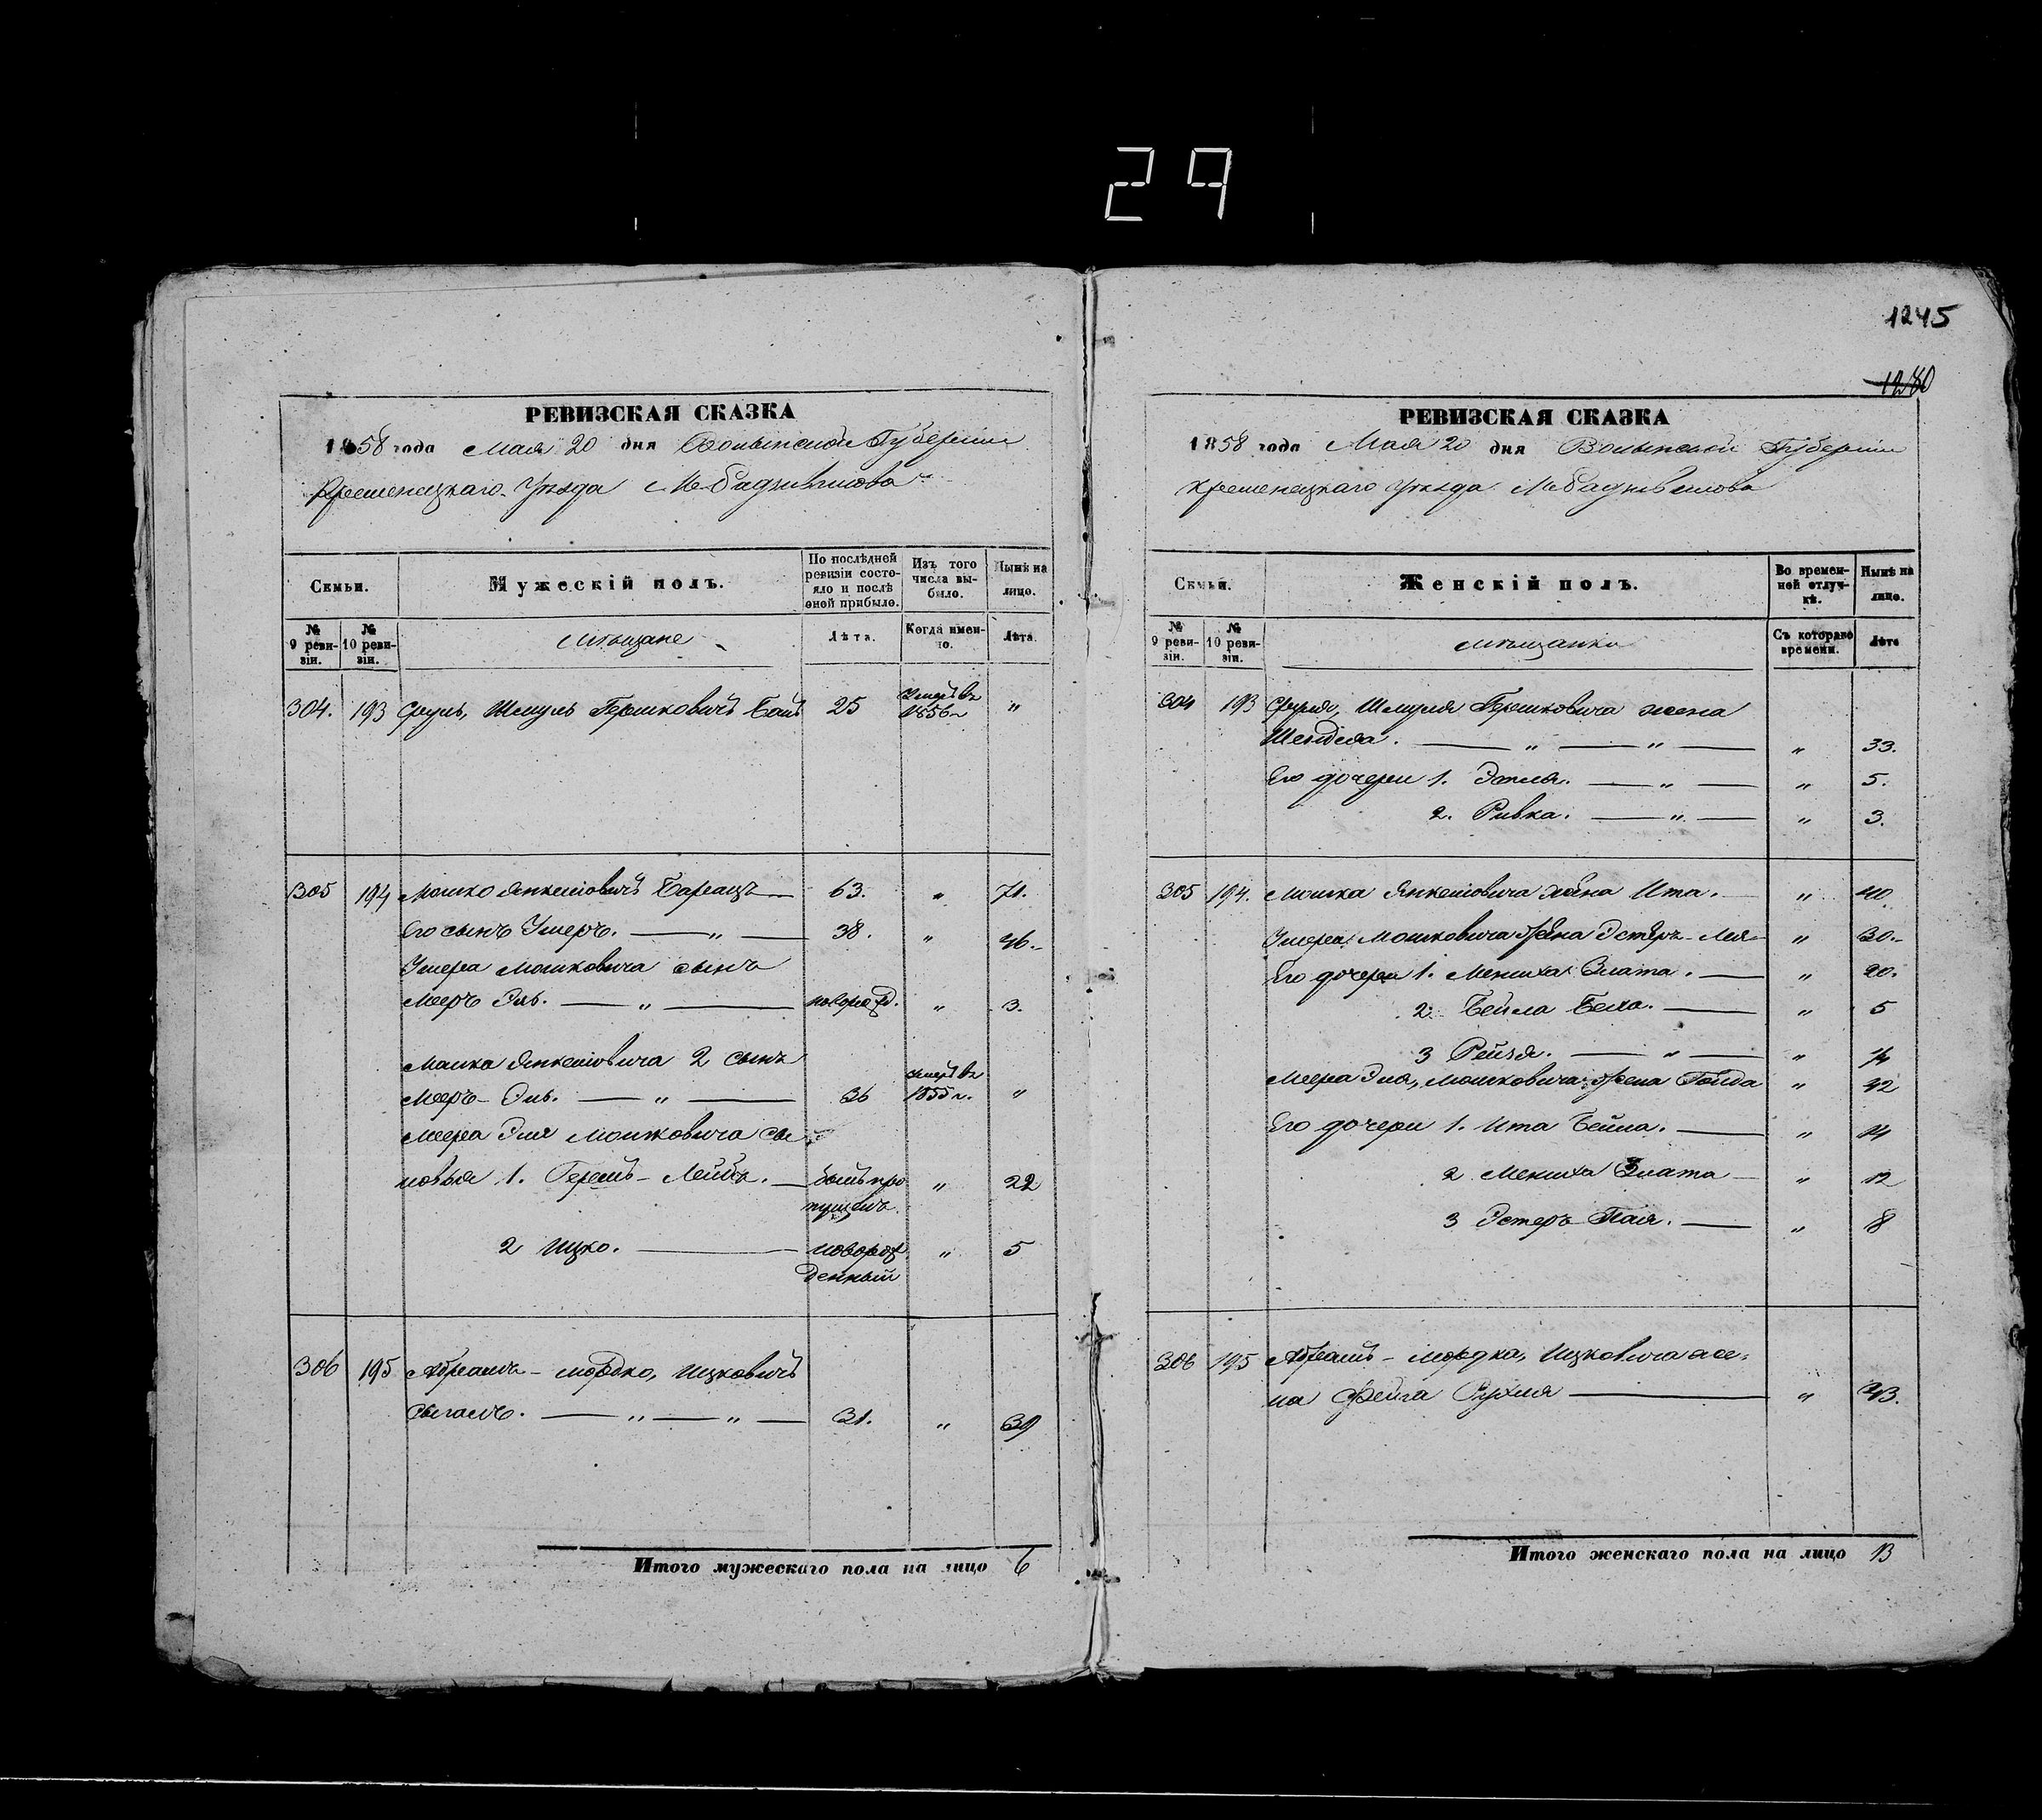 29
1245
1280
РЕВИЗСКАЯ СКАЗКА
1858 года Мая 20 дня Волынской Губернии
Кременецкаго Уѣзда М. Радзивилова
Семьи.
Мужескій полъ.
По послѣдней ревизіи состояло и послѣ оной прибыло.
Изъ того числа выбыло.
Нынѣ на лицо.
№ 9 ревизіи.
№ 10 ревизіи.
Мѣщане
Лѣта.
Когда именно.
Лѣта.
304. 193 Сруль, Шмуль Гершковичъ 25 Умеръ въ 1856 г. "
305 194 Мошко Янкелiовичъ 63. " 71.
Его сынъ Умеръ. — " — 38. " 46.
Умера Мошковича сынъ
Мееръ Эль. — " — новорожд. " 3.
Мошка Янкелiовича 2 сынъ
Мееръ - Эль. — " — 36 умеръ въ 1855 г. "
Меера Эля Мошковича сы
новья 1. Гершъ - Лейба. — былъ пропущенъ. " 22
2 Ицко. — новорожденный " 5
306 195 Абрамъ - Мордко, Ицковичъ
— " — " — 31. " 39
Итого мужескаго пола на лицо 6
РЕВИЗСКАЯ СКАЗКА
1858 года Мая 20 дня Волынской Губернии
Кременецкаго Уѣзда М. Радзивилова
Семьи.
Женскій полъ.
Во временной отлучкѣ.
Нынѣ на лицо.
№ 9 ревизіи.
№ 10 ревизіи.
Мѣщанки
Съ котораго времени.
Лѣта
304 193 Сруля, Шмуля Гершковича жена
Шендля. — " — " — " 33.
Его дочери 1. — " — " 5.
2. Ривка. — " — " 3.
305 194. Мошка Янкелiовича жена Ита. — " 40.
Умера Мошковича жена Эстеръ - Лея " 30.
Его дочери 1. Мениха Злата. — " 20.
2. Бейла — " 5
3 Рейзя. — " — " 1/4
Меера Эля, Мошковича жена Гольда " 42
Его дочери 1. Ита Бейла. — " 14
2 Мениха Злата — " 12
3 Эстеръ — " 8
306 195 Абрамъ - Мордка, Ицковича же-
на Фейга Рухля — " 43.
Итого женскаго пола на лицо 13